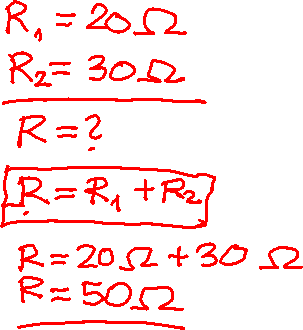 R₁ = 20Ω
R₂ = 30Ω
R = ?
R = R₁ + R₂
R = 20Ω + 30 Ω
R = 50Ω